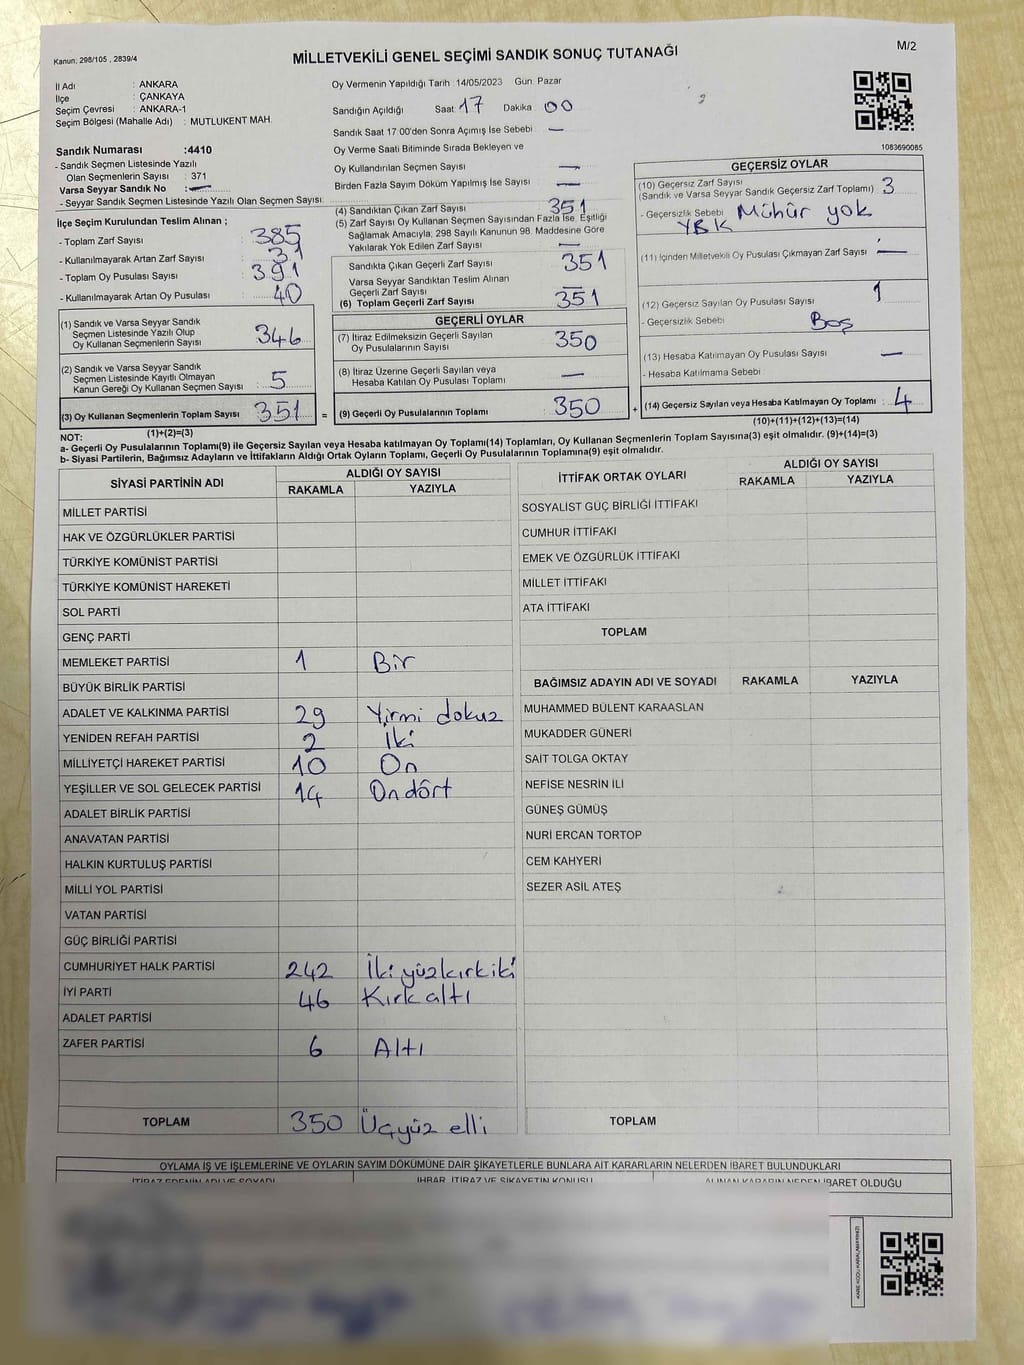 Kanun; 298/105 , 2839/4
MİLLETVEKİLİ GENEL SEÇİMİ SANDIK SONUÇ TUTANAĞI
M/2
İl Adı : ANKARA
İlçe : ÇANKAYA
Seçim Çevresi : ANKARA-1
Seçim Bölgesi (Mahalle Adı) : MUTLUKENT MAH.
Oy Vermenin Yapıldığı Tarih : 14/05/2023 Gün: Pazar
Sandığın Açıldığı Saat: 17 Dakika 00
Sandık Saat 17 00'den Sonra Açımış İse Sebebi : —
Oy Verme Saati Bitiminde Sırada Bekleyen ve
Oy Kullandırılan Seçmen Sayısı —
Birden Fazla Sayım Döküm Yapılmış İse Sayısı : —
1083690085
Sandık Numarası :4410
- Sandık Seçmen Listesinde Yazılı
Olan Seçmenlerin Sayısı : 371
Varsa Seyyar Sandık No : —
- Seyyar Sandık Seçmen Listesinde Yazılı Olan Seçmen Sayısı:
İlçe Seçim Kurulundan Teslim Alınan ;
- Toplam Zarf Sayısı : 385
- Kullanılmayarak Artan Zarf Sayısı : 31
- Toplam Oy Pusulası Sayısı : 391
- Kullanılmayarak Artan Oy Pusulası : 40
(1) Sandık ve Varsa Seyyar Sandık
Seçmen Listesinde Yazılı Olup
Oy Kullanan Seçmenlerin Sayısı : 346
(2) Sandık ve Varsa Seyyar Sandık
Seçmen Listesinde Kayıtlı Olmayan
Kanun Gereği Oy Kullanan Seçmen Sayısı : 5
(3) Oy Kullanan Seçmenlerin Toplam Sayısı : 351 =
(1)+(2)=(3)
(4) Sandıktan Çıkan Zarf Sayısı : 351
(5) Zarf Sayısı Oy Kullanan Seçmen Sayısından Fazla İse, Eşitliği
Sağlamak Amacıyla; 298 Sayılı Kanunun 98. Maddesine Göre
Yakılarak Yok Edilen Zarf Sayısı : —
Sandıkta Çıkan Geçerli Zarf Sayısı : 351
Varsa Seyyar Sandıktan Teslim Alınan
Geçerli Zarf Sayısı : —
(6) Toplam Geçerli Zarf Sayısı : 351
GEÇERLİ OYLAR
(7) İtiraz Edilmeksizin Geçerli Sayılan
Oy Pusulalarının Sayısı : 350
(8) İtiraz Üzerine Geçerli Sayılan veya
Hesaba Katılan Oy Pusulası Toplamı : —
(9) Geçerli Oy Pusulalarının Toplamı : 350 +
GEÇERSİZ OYLAR
(10) Geçersiz Zarf Sayısı
(Sandık ve Varsa Seyyar Sandık Geçersiz Zarf Toplamı) : 3
- Geçersizlik Sebebi : Mühür yok
YBK
(11) İçinden Milletvekili Oy Pusulası Çıkmayan Zarf Sayısı : —
(12) Geçersiz Sayılan Oy Pusulası Sayısı : 1
- Geçersizlik Sebebi : Boş
(13) Hesaba Katılmayan Oy Pusulası Sayısı : —
- Hesaba Katılmama Sebebi
(14) Geçersiz Sayılan veya Hesaba Katılmayan Oy Toplamı : 4
(10)+(11)+(12)+(13)=(14)
NOT:
a- Geçerli Oy Pusulalarının Toplamı(9) ile Geçersiz Sayılan veya Hesaba katılmayan Oy Toplamı(14) Toplamları, Oy Kullanan Seçmenlerin Toplam Sayısına(3) eşit olmalıdır. (9)+(14)=(3)
b- Siyasi Partilerin, Bağımsız Adayların ve İttifakların Aldığı Ortak Oyların Toplamı, Geçerli Oy Pusulalarının Toplamına(9) eşit olmalıdır.
SİYASİ PARTİNİN ADI ALDIĞI OY SAYISI
RAKAMLA YAZIYLA
MİLLET PARTİSİ
HAK VE ÖZGÜRLÜKLER PARTİSİ
TÜRKİYE KOMÜNİST PARTİSİ
TÜRKİYE KOMÜNİST HAREKETİ
SOL PARTİ
GENÇ PARTİ
MEMLEKET PARTİSİ 1 Bir
BÜYÜK BİRLİK PARTİSİ
ADALET VE KALKINMA PARTİSİ 29 Yirmi dokuz
YENİDEN REFAH PARTİSİ 2 İki
MİLLİYETÇİ HAREKET PARTİSİ 10 On
YEŞİLLER VE SOL GELECEK PARTİSİ 14 On dört
ADALET BİRLİK PARTİSİ
ANAVATAN PARTİSİ
HALKIN KURTULUŞ PARTİSİ
MİLLİ YOL PARTİSİ
VATAN PARTİSİ
GÜÇ BİRLİĞİ PARTİSİ
CUMHURİYET HALK PARTİSİ 242 İki yüzkırkiki
İYİ PARTİ 46 Kırk altı
ADALET PARTİSİ
ZAFER PARTİSİ 6 Altı
TOPLAM 350 Üçyüz elli
İTTİFAK ORTAK OYLARI ALDIĞI OY SAYISI
RAKAMLA YAZIYLA
SOSYALİST GÜÇ BİRLİĞİ İTTİFAKI
CUMHUR İTTİFAKI
EMEK VE ÖZGÜRLÜK İTTİFAKI
MİLLET İTTİFAKI
ATA İTTİFAKI
TOPLAM
BAĞIMSIZ ADAYIN ADI VE SOYADI RAKAMLA YAZIYLA
MUHAMMED BÜLENT KARAASLAN
MUKADDER GÜNERİ
SAİT TOLGA OKTAY
NEFİSE NESRİN İLİ
GÜNEŞ GÜMÜŞ
NURİ ERCAN TORTOP
CEM KAHYERİ
SEZER ASİL ATEŞ
TOPLAM
OYLAMA İŞ VE İŞLEMLERİNE VE OYLARIN SAYIM DÖKÜMÜNE DAİR ŞİKAYETLERLE BUNLARA AİT KARARLARIN NELERDEN İBARET BULUNDUKLARI
İTİRAZ EDENİN ADI VE SOYADI İHBAR, İTİRAZ VE ŞİKAYETİN KONUSU ALINAN KARARIN NEDEN İBARET OLDUĞU